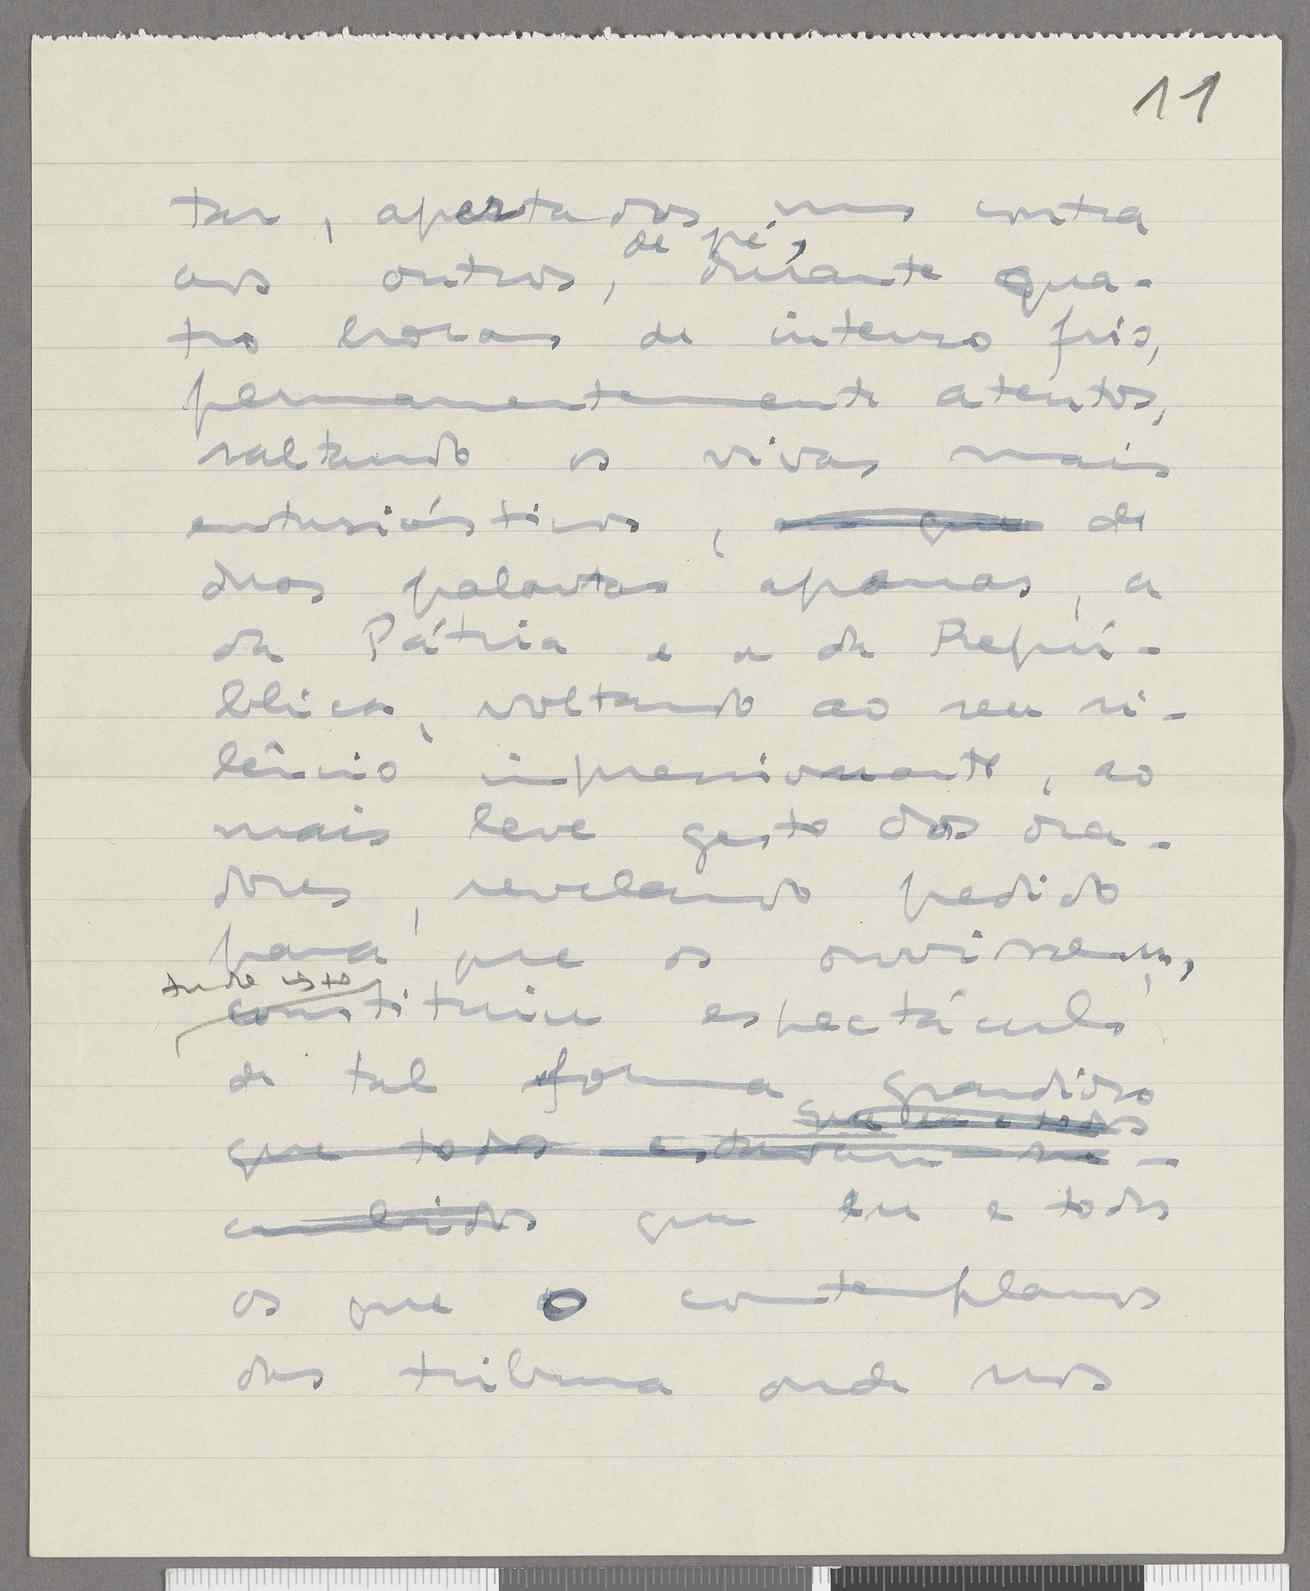 11
tar, apertados uns contra
de pé,
aos outros, durante qua-
tro horas de intenso frio,
permanentemente atentos,
soltando os vivas mais
entusiásticos, de
duas palavras apenas, a
da Pátria e a da Repú-
blica, voltando ao seu si-
lêncio impressionante, ao
mais leve gesto dos ora-
dores, revelando pedido
para que os ouvissem,
tudo isto
constituiu espectáculo
de tal forma grandioso
que eu e todos
que todos estavam
que eu e todos
os que o contemplamos
das tribuna onde nos